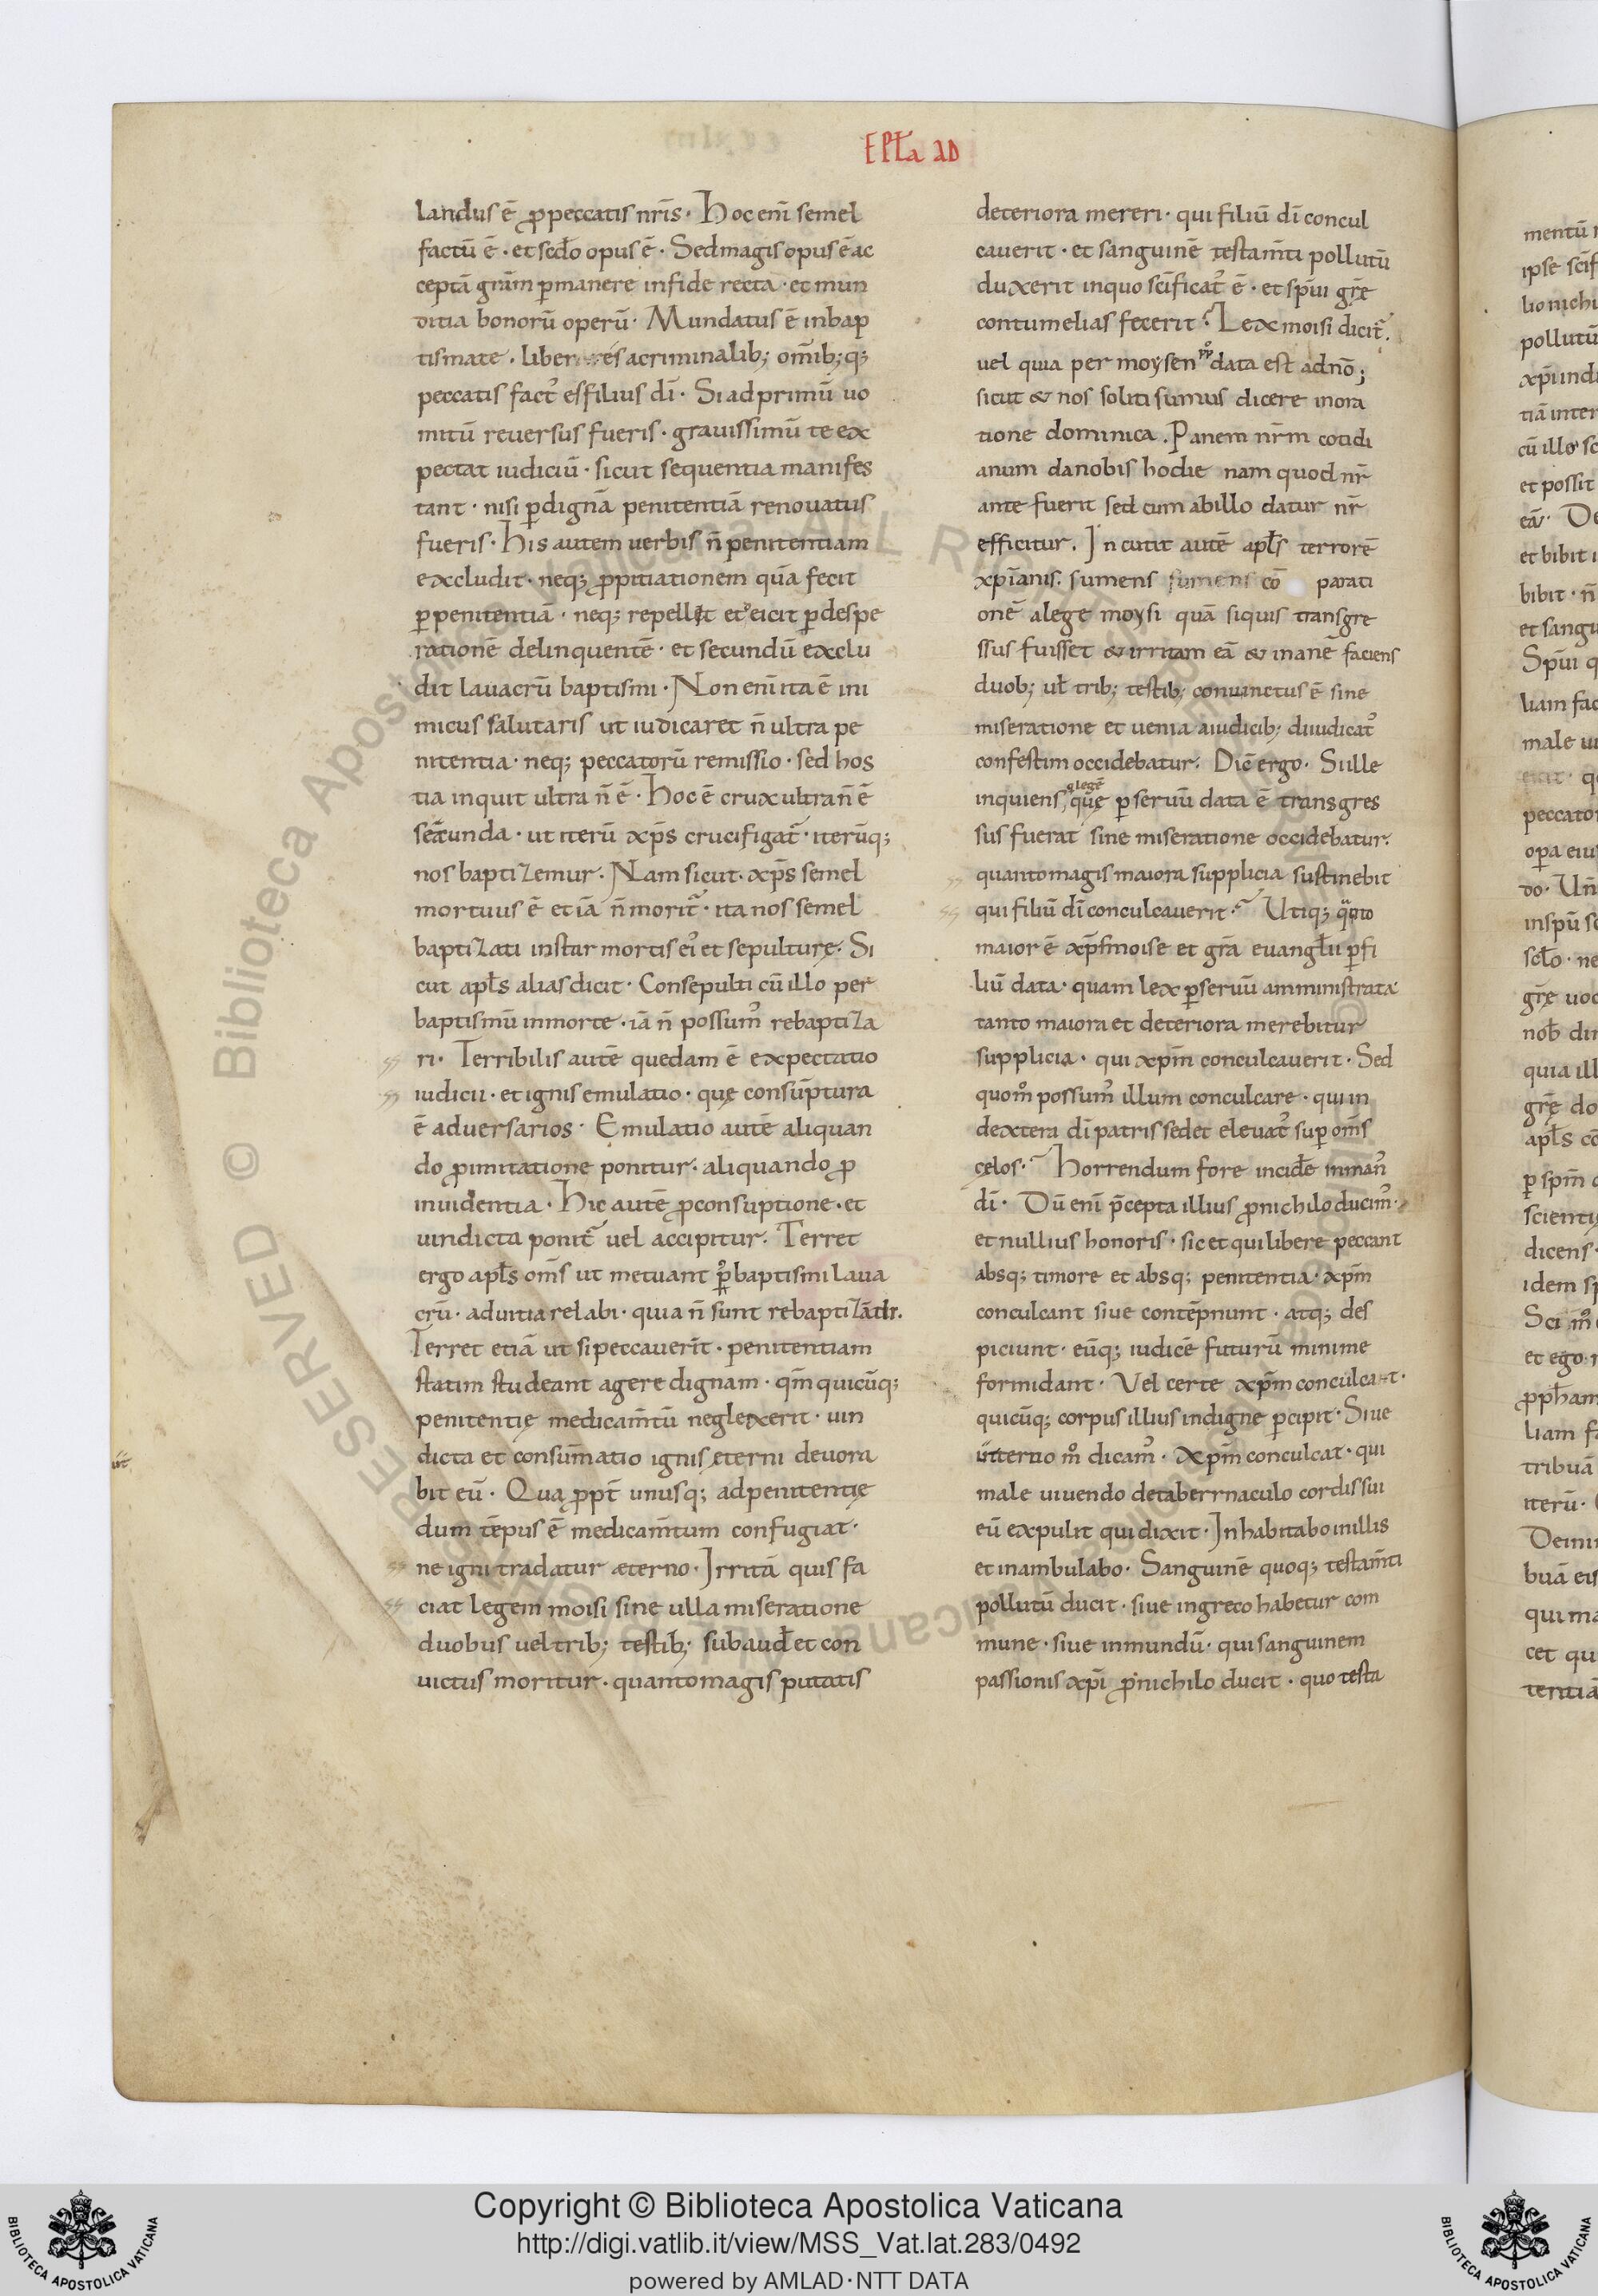 EPLa AD
landus ē ꝓpeccatis nr̄is · Hoc enī semel
factū ē · et scd̄o opus ē · Sed magis opus ē ac
ceptā grām ꝑmanere infide recta · et mun
ditia bonorū operū · Mundatus ē inbap
tismate · liber es acriminalib; om̄ib;q;
peccatis fact᾽ es filius dī · Si ad primū uo
mitū reuersus fueris · grauissimū te ex
pectat iudiciū · sicut sequentia manifes
tant · nisi ꝑdignā penitentiā renouatus
fueris · His autem uerbis n̄ penitentiam
excludit · neq; ꝓpitiationem quā fecit
ꝑpenitentiā · neq; repellit et eicit ꝑdespe
rationē delinquentē · et secundū exclu
dit lauacrū baptismi · Non enī ita ē ini
micus salutaris ut iudicaret n̄ ultra pe
nitentia · neq; peccatorū remissio · sed hos
tia inquit ultra n̄ ē · Hoc ē crux ultra n̄ ē
secunda · ut iterū xp̄s crucifigat᷑ · iterūq;
nos baptizemur · Nam sicut xp̄s semel
mortuus ē et iā n̄ morit᷑ · ita nos semel
baptizati instar mortis ei᾽ et sepulturę · Si
cut apl̄s alias dicit · Consepulti cū illo per
baptismū inmorte · iā n̄ possum᾽ rebaptiza
ri · Terribilis autē quedam ē expectatio
iudicii · et ignis emulatio · quę consūptura
ē aduersarios · Emulatio autē aliquan
do ꝓimitatione ponitur · aliquando ꝓ
inuidentia · Hic autē ꝓconsuptione · et
uindicta ponit᷑ uel accipitur · Terret
ergo apl̄s om̄s ut metuant p᾽ baptismi laua
crū · aduitia relabi · quia n̄ sunt rebaptizādi.
Terret etiā ut si peccauerīt · penitentiam
statim studeant agere dignam · qm̄ quicūq;
penitentię medicam̄tū neglexerit · uin
dicta et consum̄atio ignis eterni deuora
bit eū · Qua ꝓpt̄ unusq; adpenitentię
dum tēpus ē medicam̄tum confugiat ·
ne igni tradatur æterno · Irritā quis fa
ciat legem moisi sine ulla miseratione
duobus uel trib; testib; · subaud̄ et con
uictus moritur · quanto magis putatis
deteriora mereri · qui filiū dī concul
cauerit · et sanguinē testam̄ti pollutū
duxerit inquo sc̄ificat᾽ ē · et sp̄ui grę̄
contumelias fecerit? Lex moisi dicit᷑.
uel quia per moysen pp̊ data est ad nō;
sicut & nos soliti sumus dicere inora
tione dominica. Panem nr̄m cotidi
anum danobis hodie nam quod nr̄
ante fuerit sed cum abillo datur nr̄
efficitur. Incutit autē apl̄s terrorē
xp̄ianis. sumens cō parati
onē alege moysi quā siquis transgre
ssus fuisset & irritam eā & inanē faciens
duob; ul̄ trib; testib; conuinctus ē sine
miseratione et uenia aiudicib; diiudicat᾽
confestim occidebatur. Dic̄ ergo. Si ille
inquiens, q legē quę ꝑ seruū data ē transgres
sus fuerat sine miseratione occidebatur.
quanto magis maiora supplicia sustinebit
qui filiū dī conculcauerit? Utiq; qͣnto
maior ē xp̄s moise et gr̄a euangl̄ii ꝑ fi
liū data · quam lex ꝑ seruū amministrata
tanto maiora et deteriora merebitur
supplicia · qui xp̄m conculcauerit · Sed
quom̊ possum᾽ illum conculcare · qui in
dextera dī patris sedet eleuat᾽ sup om̄s
cęlos? Horrendum fore incidē inman᾽
dī · Dū enī p̄cepta illius ꝓnichilo ducim᾽ ·
et nullius honoris · sic et qui libere peccant
absq; timore et absq; penitentia · xp̄m
conculcant siue contēpnunt · atq; des
piciunt · eūq; iudicē futurū minime
formidant · Vel certe xp̄m conculcant ·
quicūq; corpus illius indigne ꝑcipit · Siue
ut tertio m̊ dicam᾽ · xp̄m conculcat · qui
male uiuendo detaberrnaculo cordis sui
eū expulit qui dixit · Inhabitabo inillis
et inambulabo · Sanguinē quoq; testam̄ti
pollutū ducit · siue ingreco habetur com
mune · siue inmundū · qui sanguinem
passionis xp̄i ꝓnichilo ducit · quo testa
Copyright © Biblioteca Apostolica Vaticana
http://digi.vatlib.it/view/MSS_Vat.lat.283/0492
powered by AMLAD·NTT DATA
BIBLIOTECA APOSTOLICA VATICANA
BIBLIOTECA APOSTOLICA VATICANA